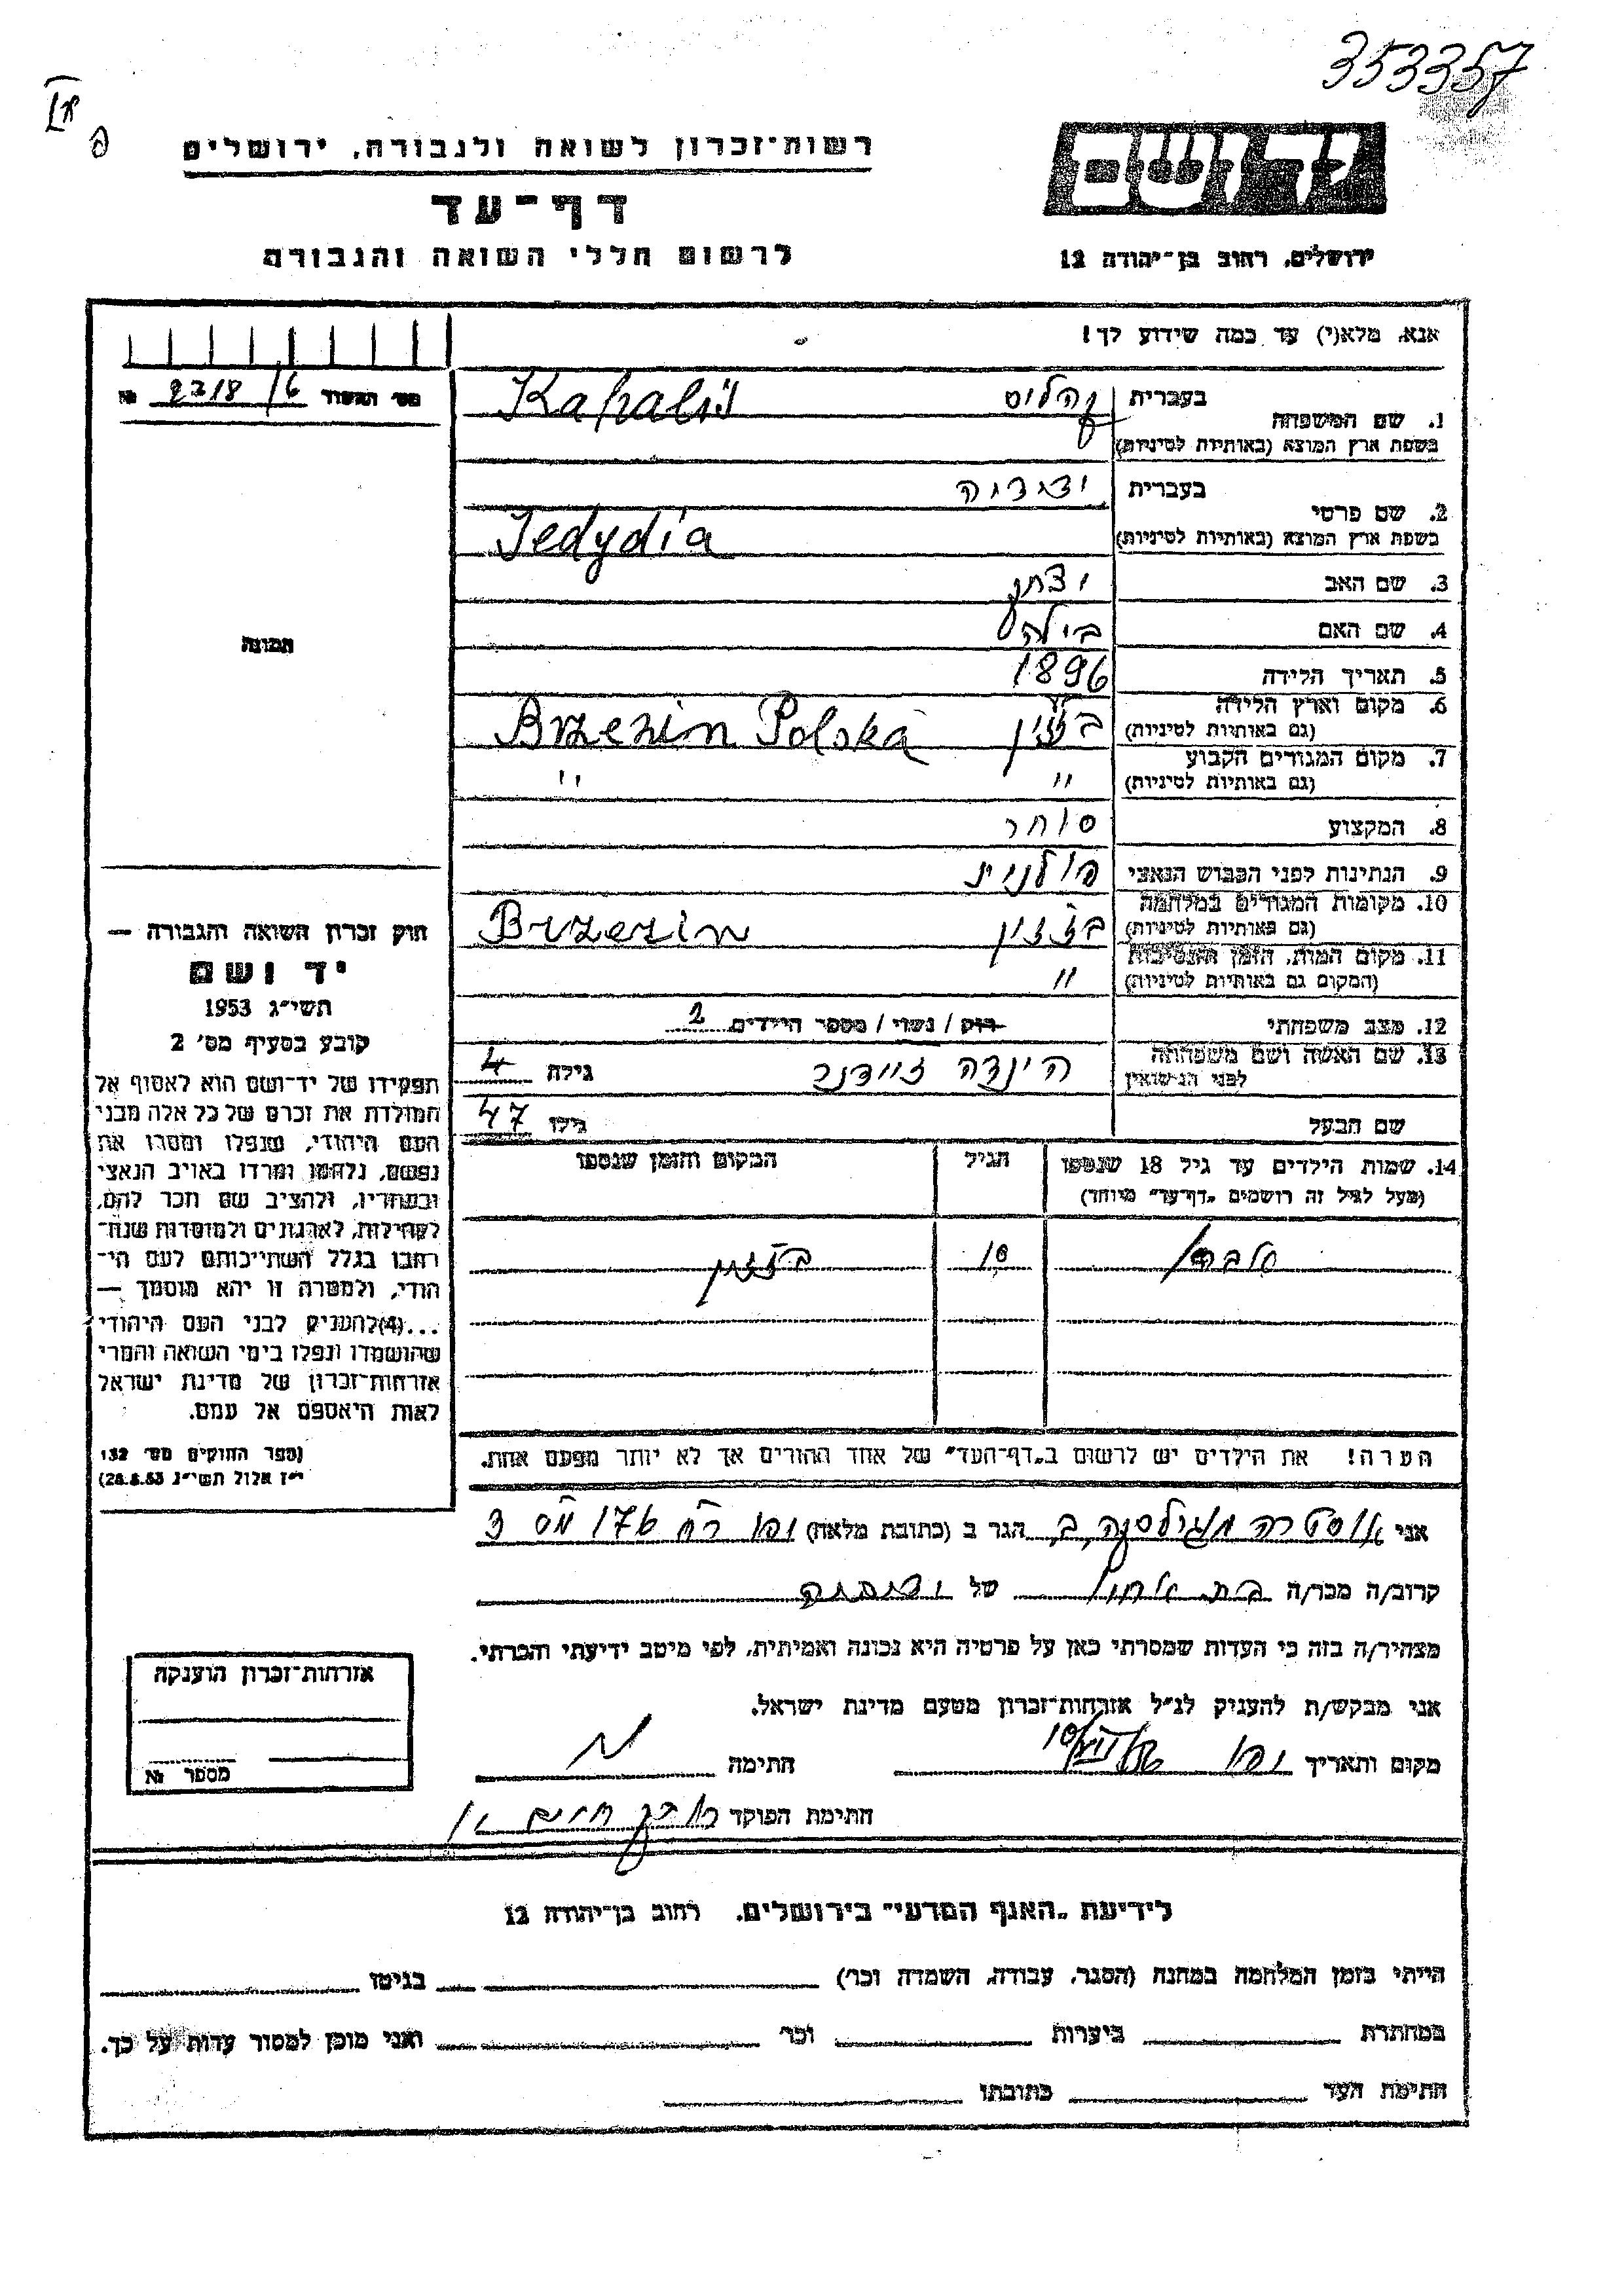 353357
רשות־זכרון לשואה ולגבורה, ירושלים
דף־עד
לרשום חללי השואה והגבורה
יד ושם
ירושלים, רחוב בן־יהודה 12
אנא, מלא(י) עד כמה שידוע לך!
מס׳ 2318/6 №
1. שם המשפחה
בעברית
בשפת ארץ המוצא (באותיות לטיניות)
2. שם פרטי
בעברית ידידיה
בשפת ארץ המוצא (באותיות לטיניות) Jedydia
3. שם האב יצחק
4. שם האם בילה
5. תאריך הלידה 1896
6. מקום וארץ הלידה
(גם באותיות לטיניות) Brzezin Polska
7. מקום המגורים הקבוע " "
(גם באותיות לטיניות)
8. המקצוע סוחר
9. הנתינות לפני הכבוש הנאצי פולנית
10. מקומות המגורים במלחמה
(גם באותיות לטיניות) Brzezin
11. מקום המות, הזמן והנסיבות "
(המקום גם באותיות לטיניות)
12. מצב משפחתי רוק / נשוי / מספר הילדים 2
13. שם האשה ושם משפחתה הינדה גילה
לפני הנישואין
שם הבעל גילו 47
14. שמות הילדים עד גיל 18 שנספו הגיל המקום והזמן שנספו
(מעל לגיל זה רושמים „דף־עד״ מיוחד)
10
הערה! את הילדים יש לרשום ב„דף־העד״ של אחד ההורים אך לא יותר מפעם אחת.
תמונה
חוק זכרון השואה והגבורה —
יד ושם
תשי״ג 1953
קובע בסעיף מס׳ 2
תפקידו של יד־ושם הוא לאסוף אל
המולדת את זכרם של כל אלה מבני
העם היהודי, שנפלו ומסרו את
נפשם, נלחמו ומרדו באויב הנאצי
ובעוזריו, ולהציב שם וזכר להם,
לקהילות, לארגונים ולמוסדות שנח־
רבו בגלל השתייכותם לעם הי־
הודי, ולמטרה זו יהא מוסמך —
...(4)להעניק לבני העם היהודי
שהושמדו ונפלו בימי השואה והמרי
אזרחות־זכרון של מדינת ישראל
לאות היאספם אל עמם.
(ספר החוקים מס׳ 132
י״ז אלול תשי״ג 28.8.53)
אני הגר ב (כתובת מלאה)
קרוב/ה מכר/ה של ידידיה
מצהיר/ה בזה כי העדות שמסרתי כאן על פרטיה היא נכונה ואמיתית, לפי מיטב ידיעתי והכרתי.
אני מבקש/ת להעניק לנ״ל אזרחות־זכרון מטעם מדינת ישראל.
מקום ותאריך יפו חתימה
חתימת הפוקד
אזרחות־זכרון הוענקה
מספר №
לידיעת „האגף המדעי״ בירושלים, רחוב בן־יהודה 12
הייתי בזמן המלחמה במחנה (הסגר, עבודה, השמדה וכר) בגיטו
במחתרת ביערות וכר ואני מוכן למסור עדות על כך.
חתימת העד כתובתו